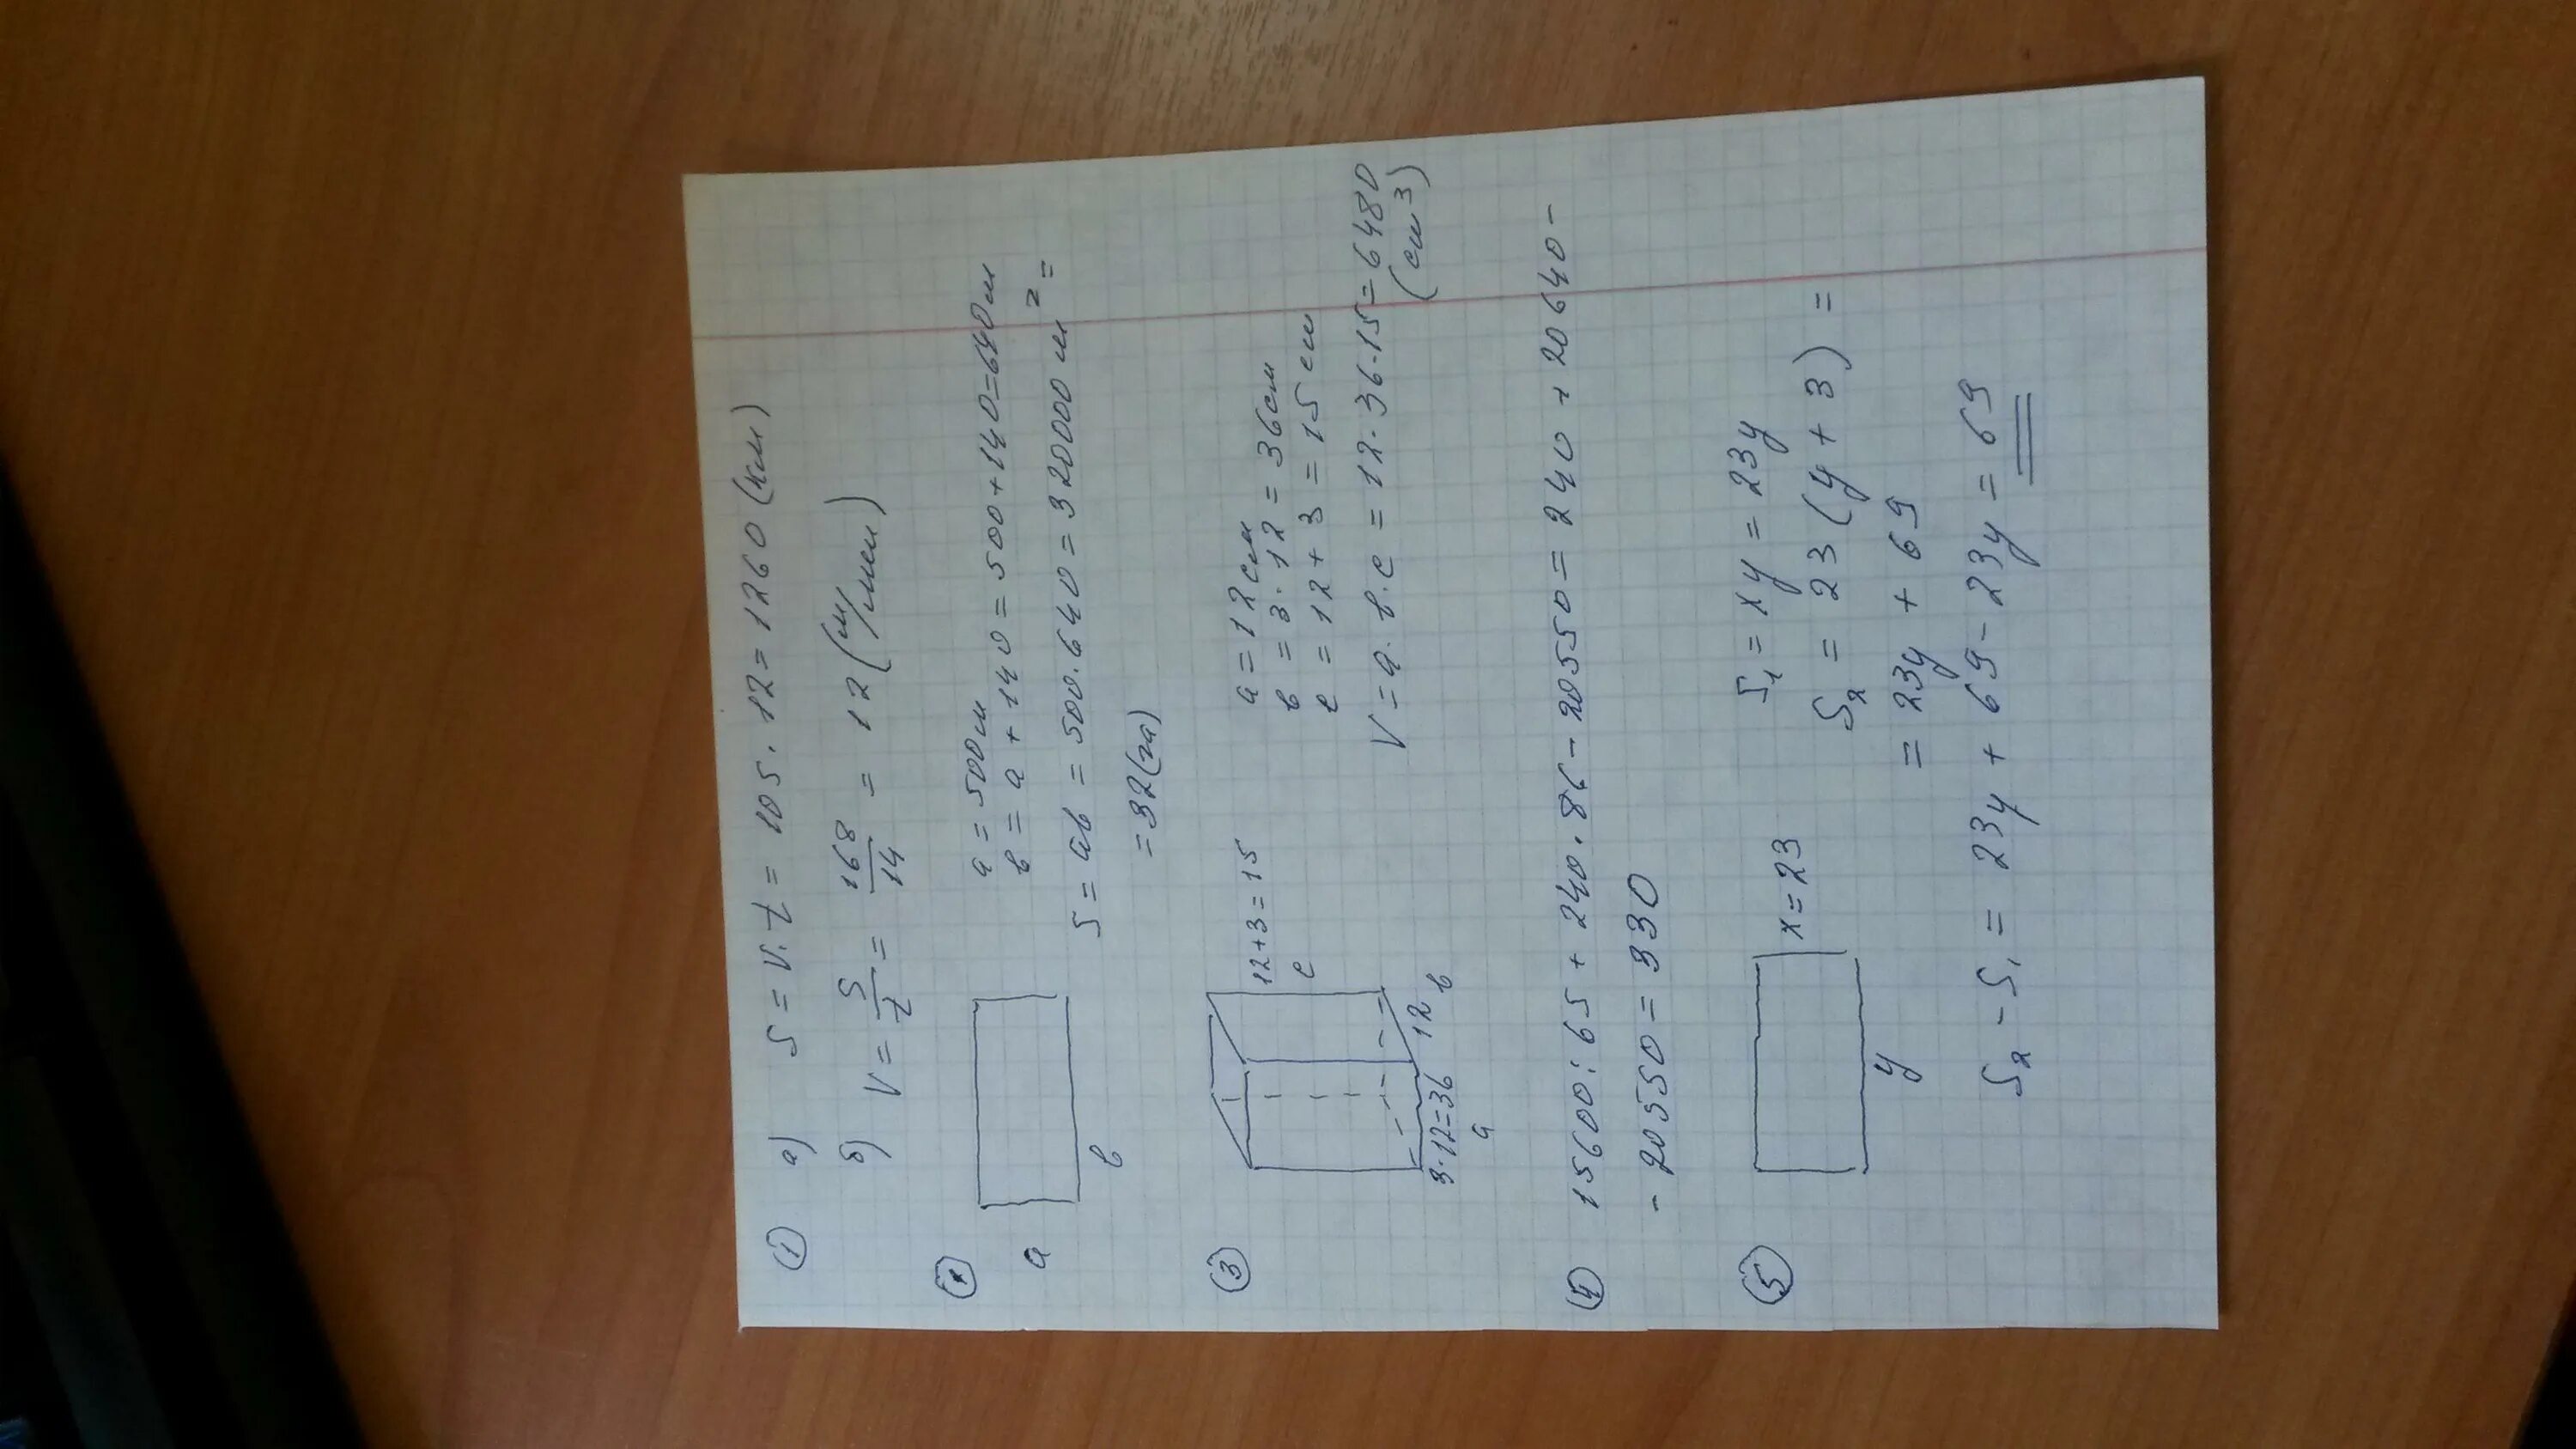 1 а) S = v·t = 105·12 = 1260 (км)
б) V = S/t = 168/14 = 12 (м/мин)
2
a = 500 м
в = a + 140 = 500 + 140 = 640 м
a
в
S = ab = 500·640 = 320000 м² =
= 32 (га)
3
12+3=15
c
3·12=36
a
12
в
a = 12 см
в = 3·12 = 36 см
c = 12 + 3 = 15 см
V = a·в·c = 12·36·15 = 6480
(см³)
4 15600 : 65 + 240·86 - 20550 = 240 + 20640 -
- 20550 = 330
5
x = 23
y
S₁ = xy = 23y
S₂ = 23 (y + 3) =
= 23y + 69
S₂ - S₁ = 23y + 69 - 23y = 69